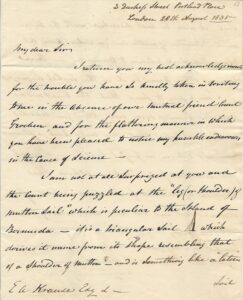 2 Duchess Street Portland Place
London 28th August 1835
My dear Sir
I return you my best acknowledgements
for the trouble you have so kindly taken in writing
me in the absence of our mutual friend Count
and for the flattering manner in which
you have been pleased to notice my humble endeavours
in the cause of Science —
I am not at all surprized at you and
the Count being puzzled at the "
mutton Sail" which is peculiar to the Island of
Bermuda — it is a triangular Sail which
derives it name from its shape resembling that
of a Shoulder of mutton — and is something like a lateen
E A Krause Esq
Sail